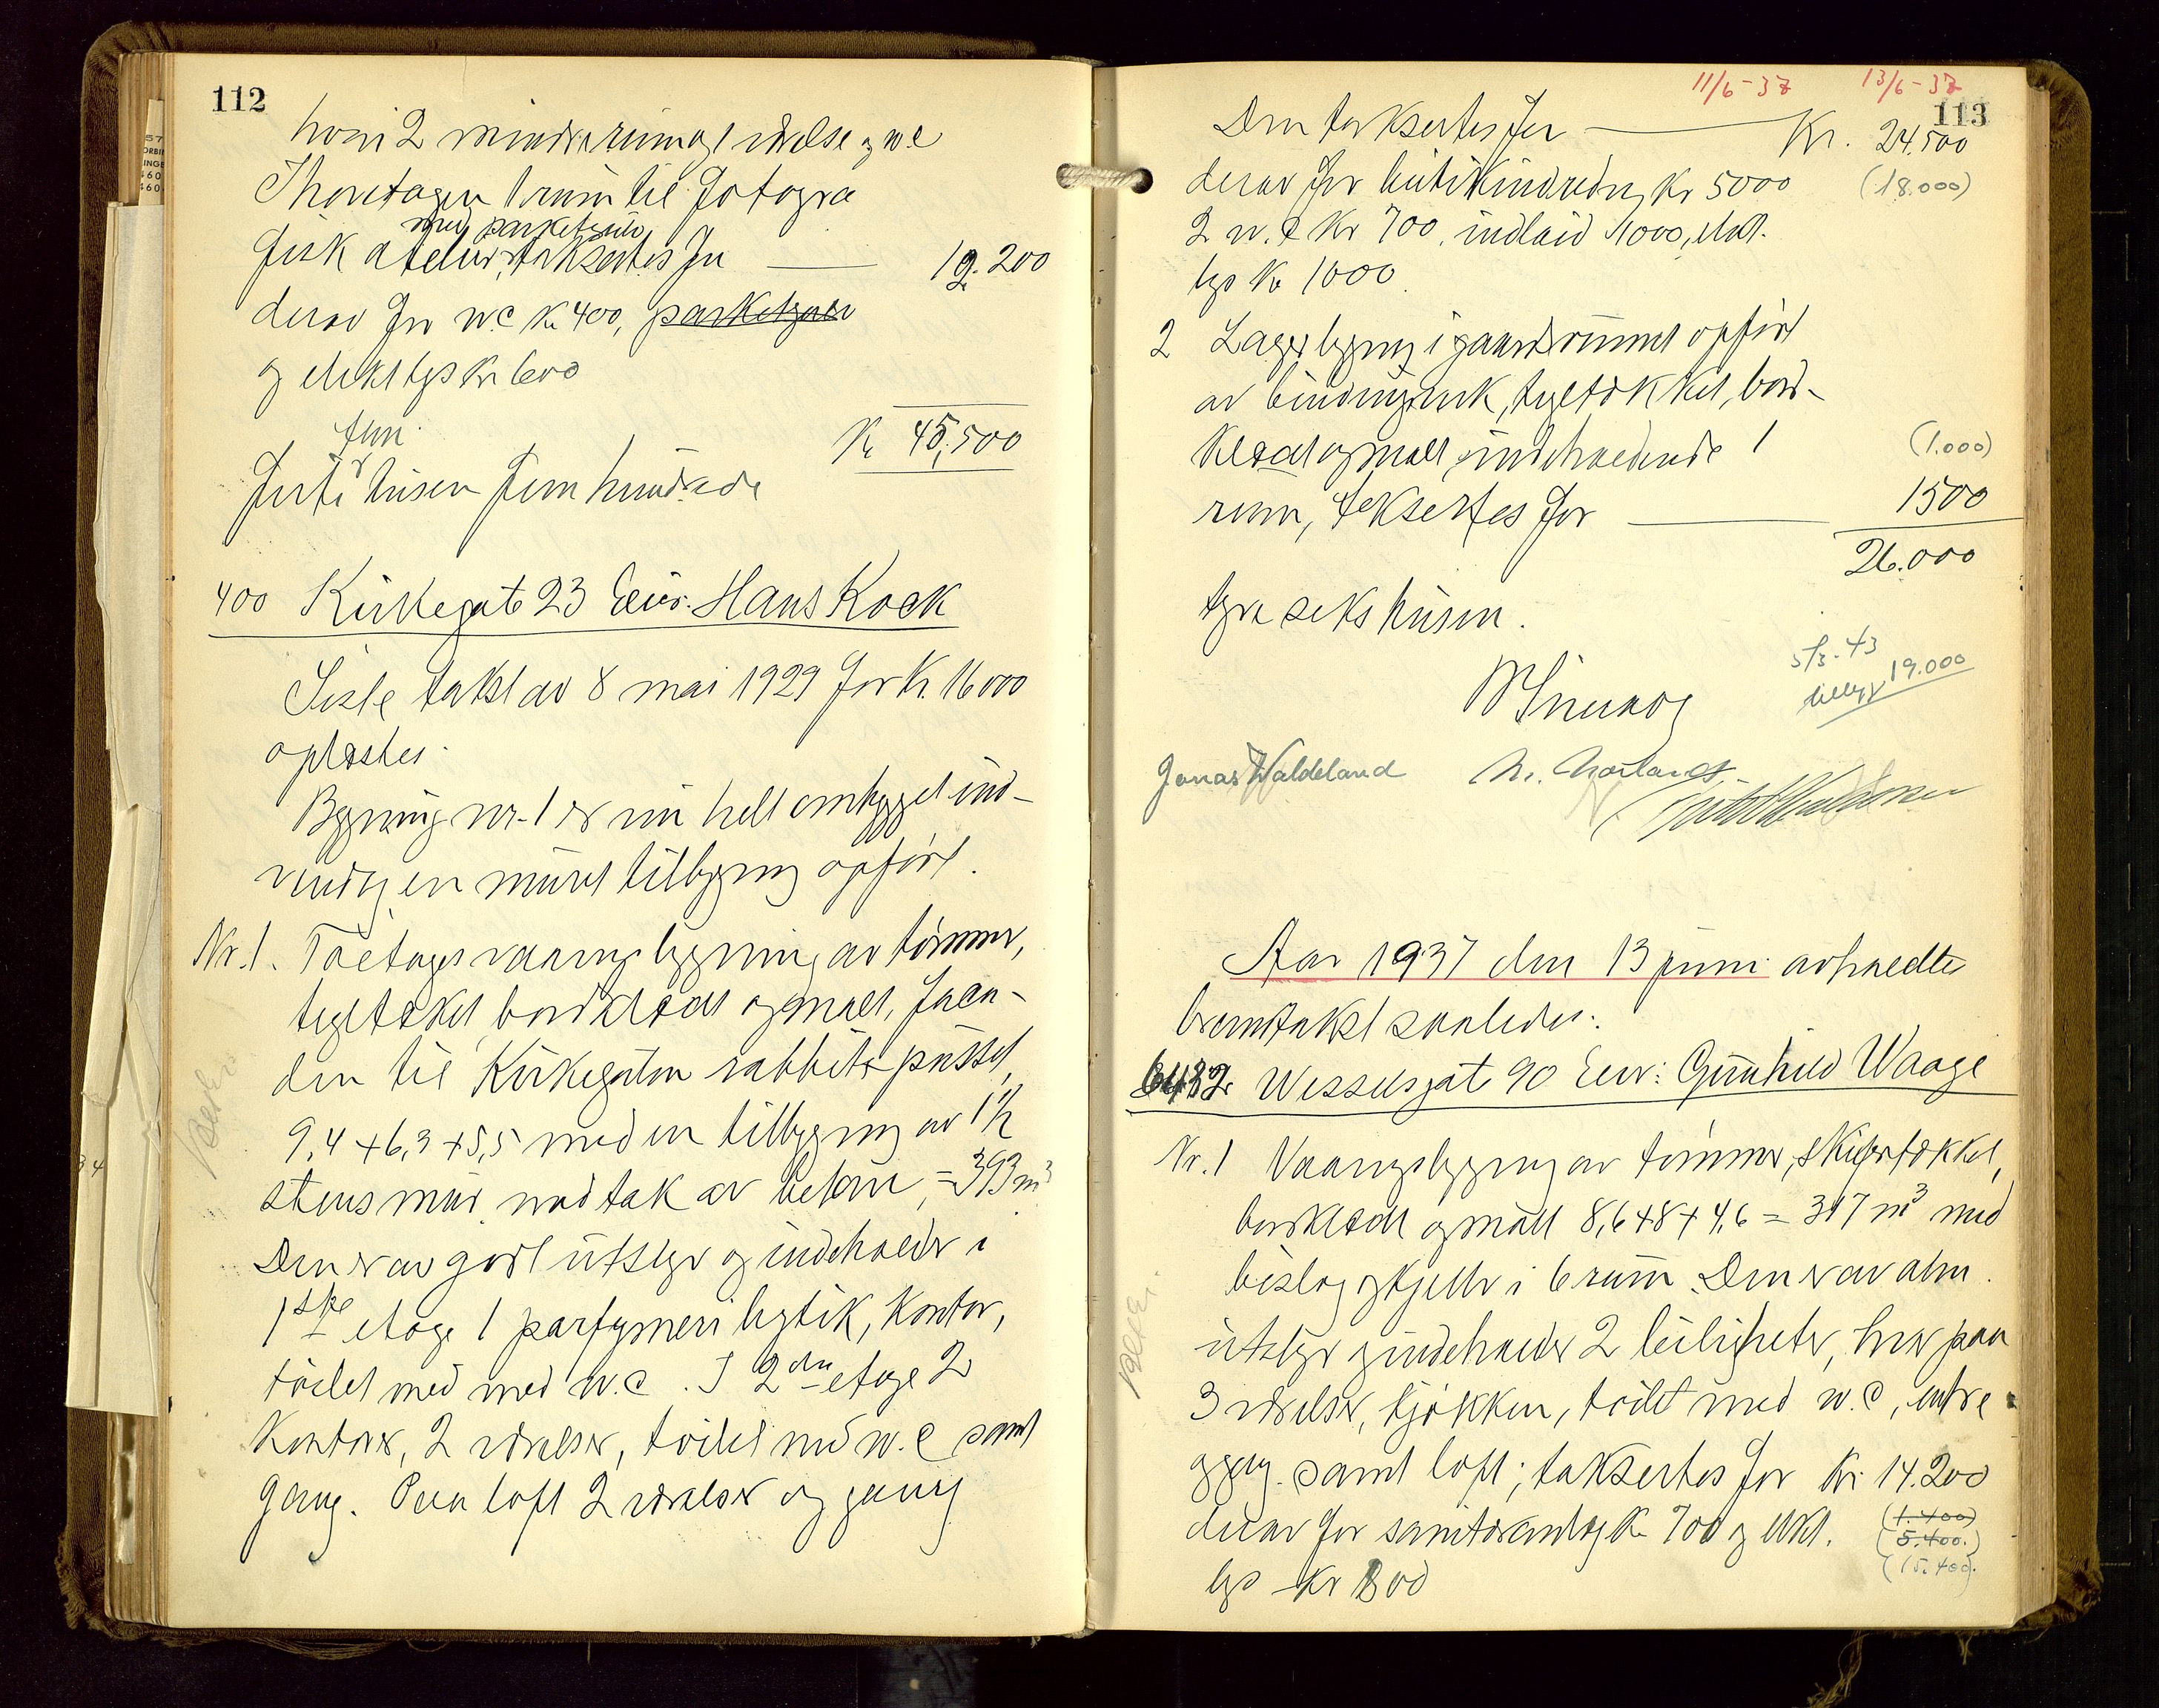 112
hvori 2 mindre rum og 1 værelse og w.c
I hovetagen 1 rum til fotogra
med parketgulv
fisk atelier, taksertes for 12.200
derav for w.c kr. 400, parketgulv
og elekt lys kr 600
Kr 45.500
fem
førti tusen fem hundrede
400 Kirkegate 23 Eier: Hans Kock
Siste takst av 8 mai 1929 for kr. 16000
oplæstes.
Bygning nr. 1 er nu helt ombygget ind-
vendig en muret tilbygning opført.
Nr. 1. Toetages vaaningsbygning av tømmer,
tegltækket, bordklædt og malt, faca-
den til Kirkegaten rabbits pusset,
9,4 + 6,3 + 5,5 med en tilbygning av 1 1/2
stens mur med tak av beton, = 393 m³
Den er av godt utstyr og indeholder i
1ste etage 1 parfymeri bytik, kontor,
toilet med med w.c. I 2den etage 2
kontorer, 2 værelser, toilet med w.c samt
gang. Paa loft 2 værelser og gang
11/6-37 13/6-37
113
Den taksertes for Kr. 24.500
derav for butikkindredn. kr 5000 (18.000)
2 w.c kr 700, indlaid 1000, elekt.
lys kr 1000.
2 Lagerbygning i gaardsrummet opført
av bindingsverk, tegltækket, bord-
klædt og malt, indeholdende 1 (1.000)
rum, taksertes for 1500
26.000
tyve seks tusen.
5/3-43
19.000
tillegg
Jonas Waldeland
Aar 1937 den 13 juni avholdtes
brandtakst saaledes:
Wesselsgat 90 Eier: Gunhild Waage
Nr. 1 Vaaningsbygning av tømmer, skifertækket,
bordklædt og malt 8,6 + 8 + 4,6 = 317 m³ med
bislag og kjeller i 6 rum. Den er av alm.
utstyr og indeholder 2 leiligheter, hver paa
3 værelser, kjøkken, toilet med w.c, entre
og gang samt loft; taksertes for kr. 14.200
derav for sanitæranlæg kr 700 og elekt. (1.400)
(5.400.)
(15.400).
lys kr 800